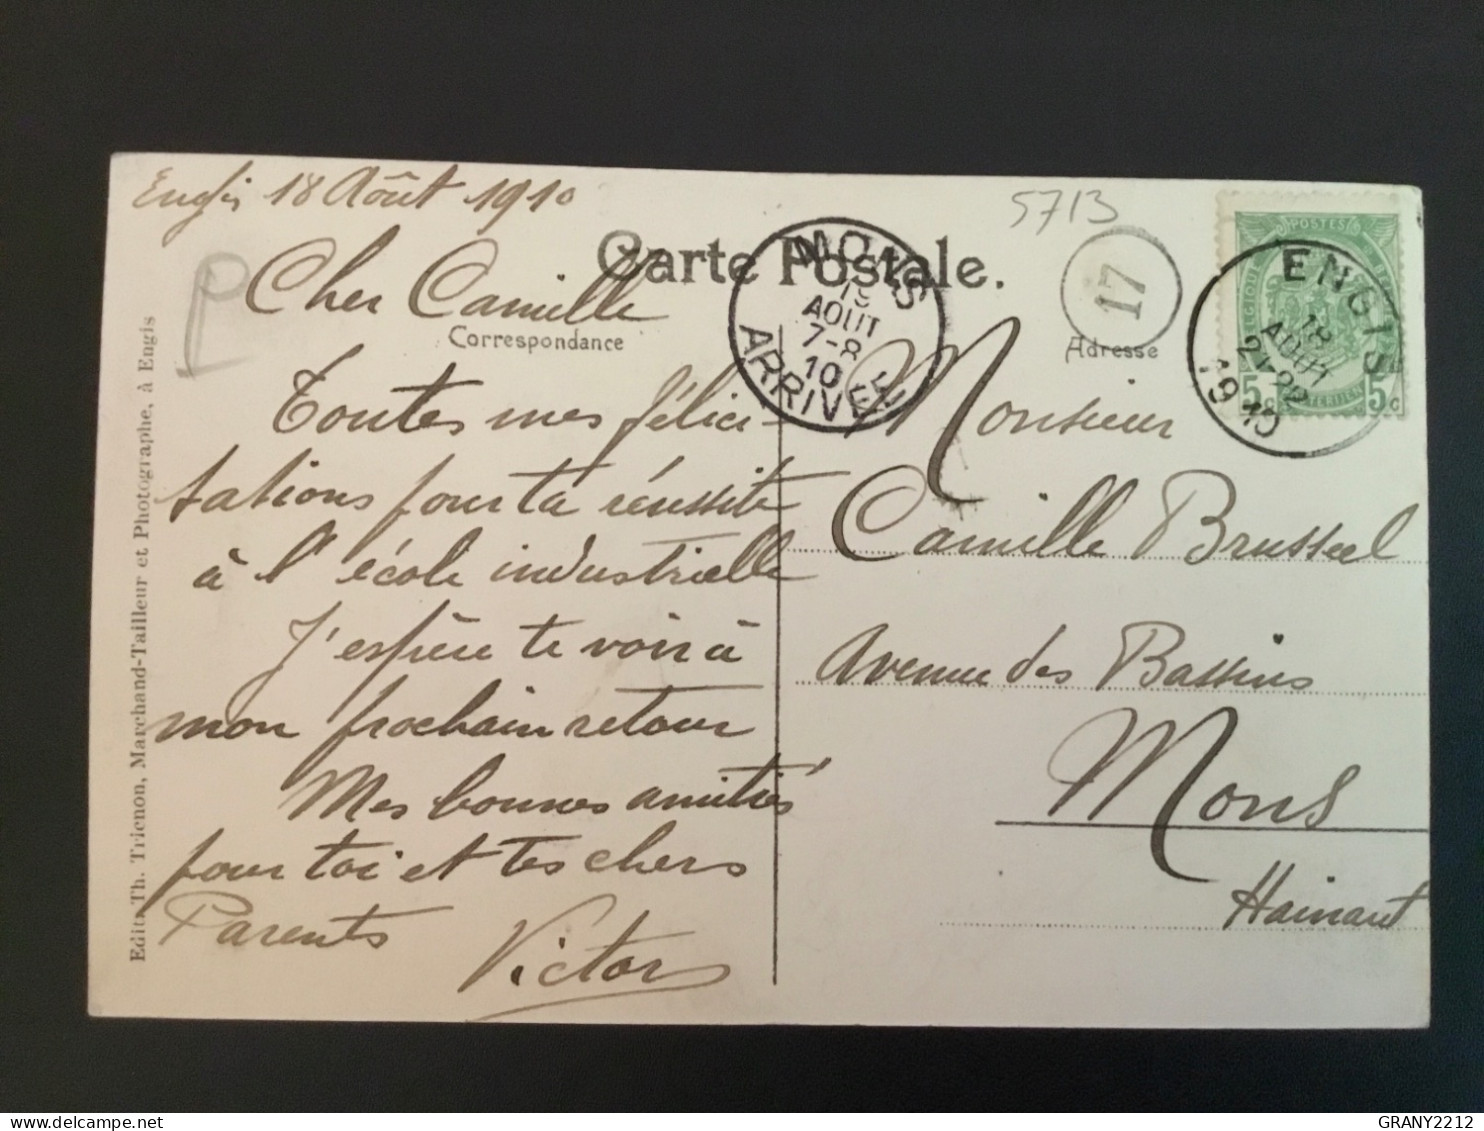 Engis 18 Août 1910
5713
Carte Postale.
MONS
19
AOUT
7-8
10
ARRIVÉE
17
ENGIS
18
AOUT
21-22
1910
POSTES
5c 5c
Cher Camille
Correspondance
Adresse
Toutes mes félici-
tations pour ta réussite
à l'école industrielle
J'espère te voir à
mon prochain retour
Mes bonnes amitiés
pour toi et tes chers
Parents
Victor
Monsieur
Camille Brusseel
Avenue des Bassins
Mons
Hainaut
P
Edit. Th. Tricnon, Marchand-Tailleur et Photographe, à Engis
delcampe.net
GRANY2212